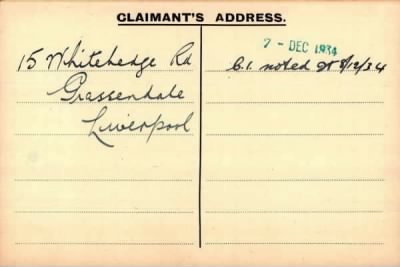 CLAIMANT'S ADDRESS.
15 Whitehedge Rd
Grassendale
Liverpool
7 - DEC 1934
C.I. noted 8/12/34